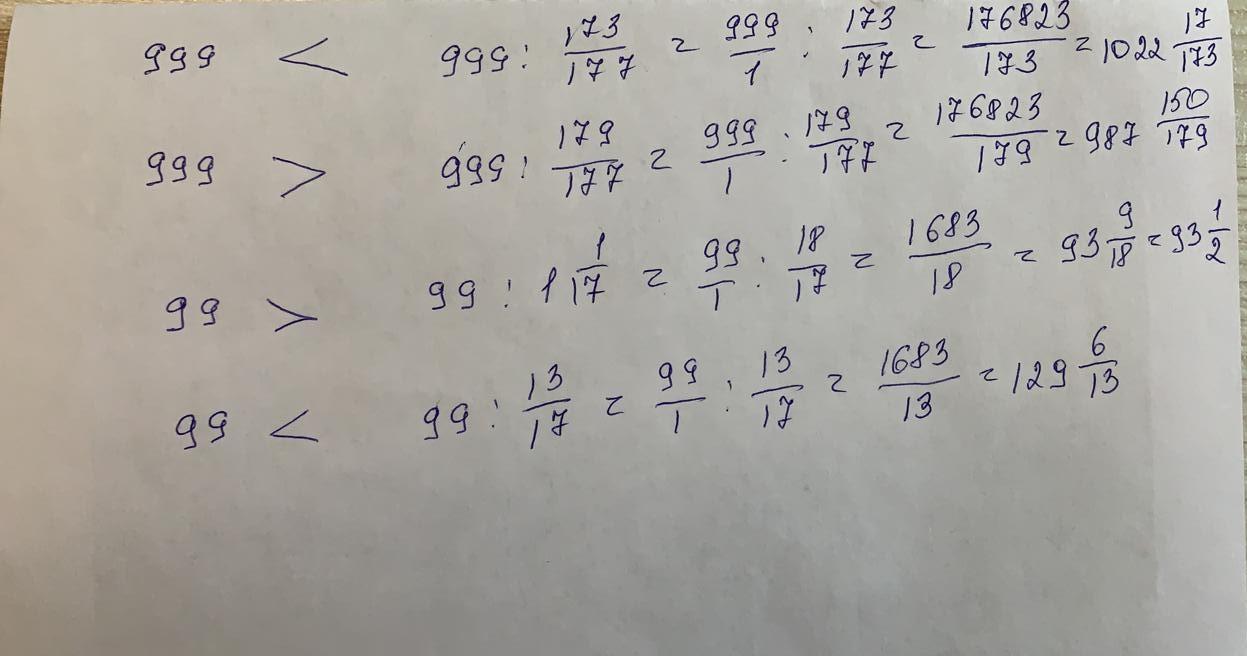 999 < 999 : 173/177 = 999/1 : 173/177 = 176823/173 = 1022 17/173
999 > 999 : 179/177 = 999/1 : 179/177 = 176823/179 = 987 150/179
99 > 99 : 1 1/17 = 99/1 : 18/17 = 1683/18 = 93 9/18 = 93 1/2
99 < 99 : 13/17 = 99/1 : 13/17 = 1683/13 = 129 6/13